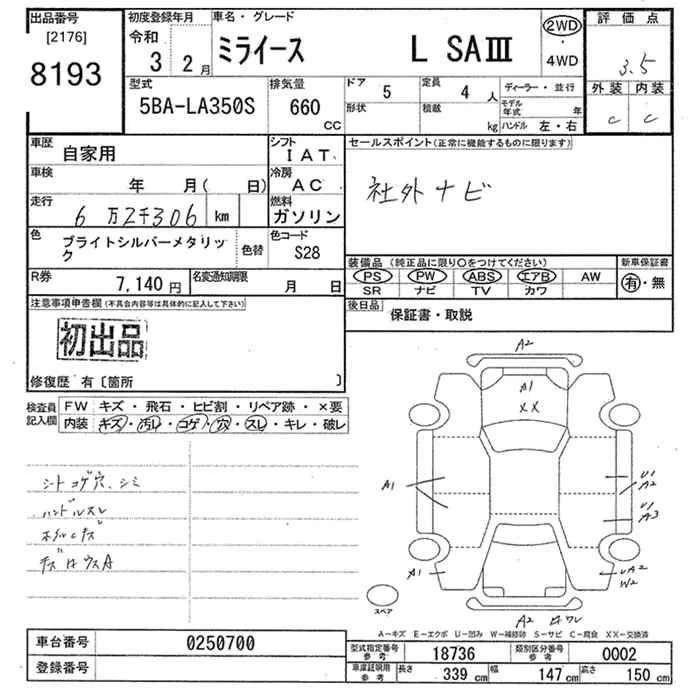 出品番号
[2176]
8193
初度登録年月
令和
3 2月
車名・グレード
ミライース L SAⅢ
2WD
・
4WD
評価点
3.5
外装 内装
C C
型式
5BA-LA350S
排気量
660
cc
ドア
5
定員
4人
形状
積載
kg
ディーラー・並行
モデル年式 年
ハンドル 左・右
車歴
自家用
シフト
IAT
車検
年 月( 日)
冷房
AC
走行
6万2千306 km
燃料
ガソリン
色
ブライトシルバーメタリック
色替
色コード
S28
R券
7,140円
名変通知期限
月 日
セールスポイント(正常に機能するものに限ります)
社外ナビ
装備品(純正品に限り○をつけてください)
新車保証書
PS PW ABS エアB AW
有・無
SR ナビ TV カワ
後日品
保証書・取説
注意事項申告欄(不具合内容等は具体的に記入して下さい)
初出品
修復歴 有〔箇所 〕
検査員記入欄
FW キズ・飛石・ヒビ割・リペア跡・×要
内装 キズ・汚レ・コゲ・穴・スレ・キレ・破レ
シートコゲ穴、シミ
ハンドルスレ
A2
A1
XX
A1
U1
A2
U1
A3
A1
UA2
W2
A2
ワレ
スペア
A-キズ E-エクボ U-凹み W-補修跡 S-サビ C-腐食 XX-交換済
車台番号
0250700
登録番号
型式指定番号
参考
18736
類別区分番号
参考
0002
車庫証明用
参考
長さ
339 cm
幅
147 cm
高さ
150 cm